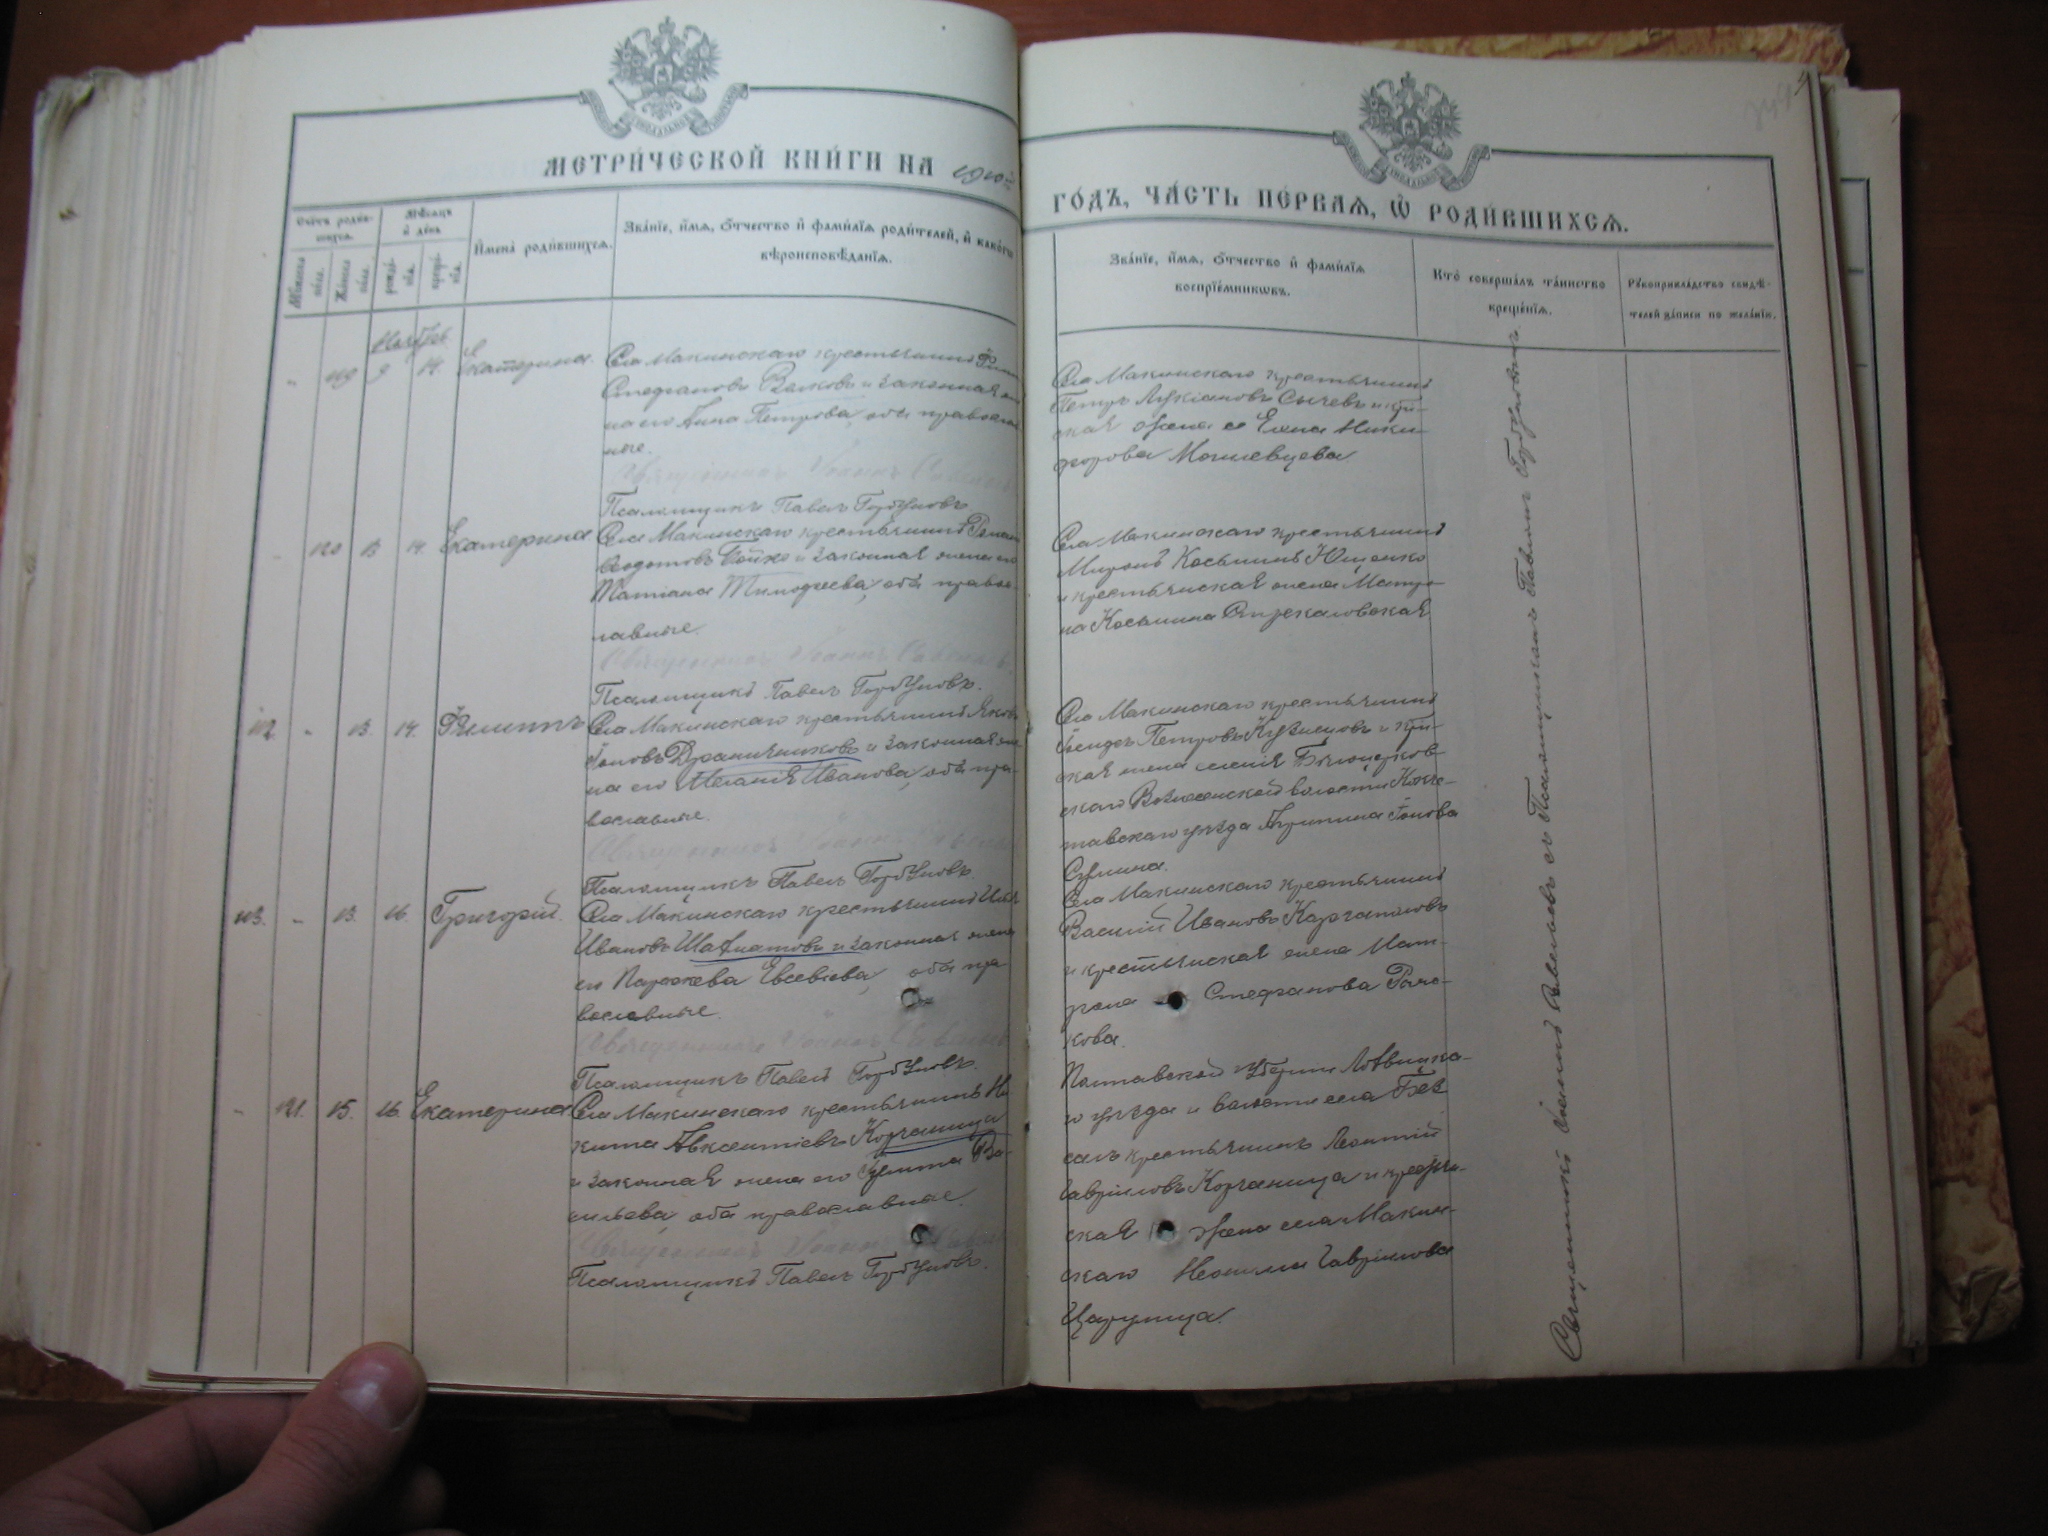 МЕТРИЧЕСКОЙ КНИГИ НА 1910й
ГОДЪ, ЧАСТЬ ПЕРВАЯ, Ѡ РОДИВШИХСЯ.
Счетъ родив-
шихся.
Мужеска пола.
Женска пола.
Мѣсяцъ и день
рожде-
нія.
креще-
нія.
Имена родившихся.
Званіе, имя, отчество и фамилія родителей, и какого
вѣроисповѣданія.
Званіе, имя, отчество и фамилія
воспріемниковъ.
Кто совершалъ таинство
крещенія.
Рукоприкладство свидѣ-
телей записи по желанію.
Ноябрь
119 9 14. Екатерина.
Села Макинскаго крестьянинъ
Стефановъ Волковъ и законная же-
на его Анна Петрова, оба православ
ные.
Священникъ Іоаннъ
Псаломщикъ Павелъ Горбуновъ
Села Макинскаго крестьянинъ
Петръ Лукіановъ Сычевъ и кр-
ская жена с Елена Ники-
форова
120 13 14. Екатерина
Села Макинскаго крестьянинъ Роман
Ѳеодотовъ Бойко и законная жена его
Татіана Тимофеева, оба правос-
лавные.
Священникъ Іоаннъ
Псаломщикъ Павелъ Горбуновъ.
Села Макинскаго крестьянинъ
Миронъ Косминъ Ющенко
и крестьянская жена Матро-
на Космина Стрекаловская
112 13. 14. Филиппъ
Села Макинскаго крестьянинъ Яковъ
Іоновъ Драничниковъ и законная же
на его Меланія Иванова, оба пра-
вославные.
Священникъ Іоаннъ
Псаломщикъ Павелъ Горбуновъ.
Села Макинскаго крестьянинъ
Петровъ Кузнецовъ и кр-
ская жена селенія Бѣлоцерков-
скаго Вознесенской волости Кокче-
тавскаго уѣзда Агрипина Іонова
Сулима.
113. 13. 16. Григорій.
Села Макинскаго крестьянинъ Илья
Ивановъ Шахматовъ и законная жена
его Параскева Евсевіева, оба пра
вославные.
Священникъ Іоаннъ
Псаломщикъ Павелъ Горбуновъ.
Села Макинскаго крестьянинъ
Василій Ивановъ Каргаполовъ
и крестьянская жена Мат-
рона Стефанова
кова.
121. 15. 16. Екатерина
Села Макинскаго крестьянинъ Ни
кита Авксентіевъ Корчаница
и законная жена его Улита Ва-
сильева, оба православные.
Священникъ Іоаннъ
Псаломщикъ Павелъ Горбуновъ.
Полтавской губерніи Лохвицка-
го уѣзда и волости села Бѣв
салъ крестьянинъ Леонтій
Гавріиловъ Корчаница и крестьян-
ская жена села Макин-
скаго Неонила Гавріилова
Царупица.
Священникъ Іоаннъ съ Псаломщикомъ Павломъ Горбуновымъ